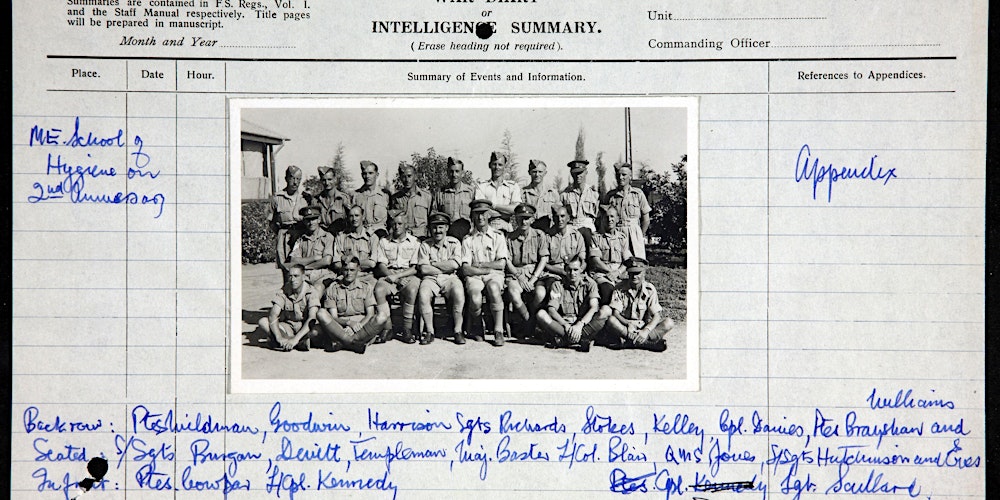 Summaries are contained in F.S. Regs., Vol. I.
and the Staff Manual respectively. Title pages
will be prepared in manuscript.
Month and Year
WAR DIARY
or
INTELLIGENCE SUMMARY.
(Erase heading not required).
Unit
Commanding Officer
Place. Date Hour. Summary of Events and Information. References to Appendices.
M.E. School of
Hygiene on
2nd
Appendix
Williams
Back row: Ptes Wildman, Goodwin, Harrison Sgts Richards, Stokes, Kelley, Cpl. Davies, Ptes Brayshaw and
Seated: S/Sgts Burgan, Devitt, Templeman, Maj. Baster L/Col. Blair, QMS Jones, S/Sgts Hutchinson and
In front: Ptes. Cowpar L/Cpl. Kennedy Ptes. Cpl. Kennedy Sgt. Saillard